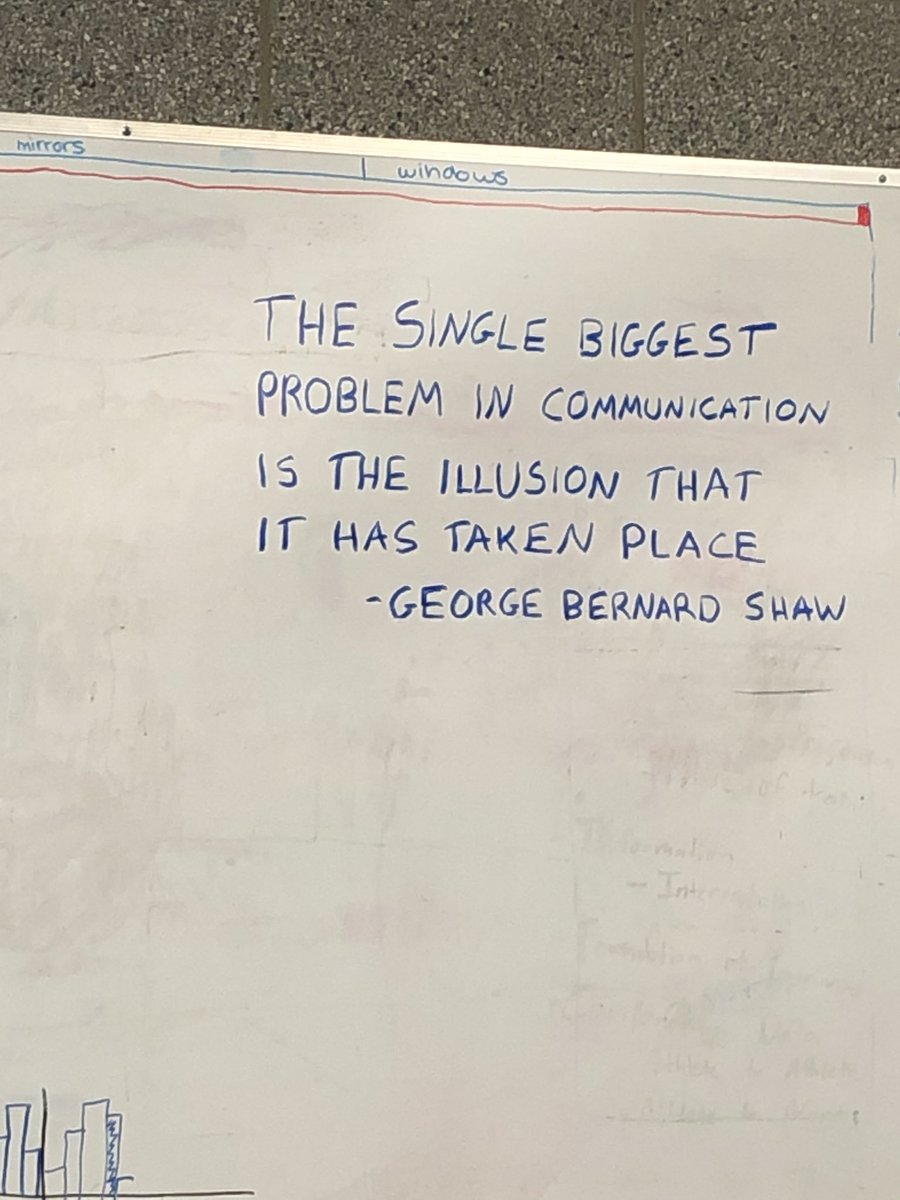 mirrors windows
THE SINGLE BIGGEST
PROBLEM IN COMMUNICATION
IS THE ILLUSION THAT
IT HAS TAKEN PLACE
-GEORGE BERNARD SHAW